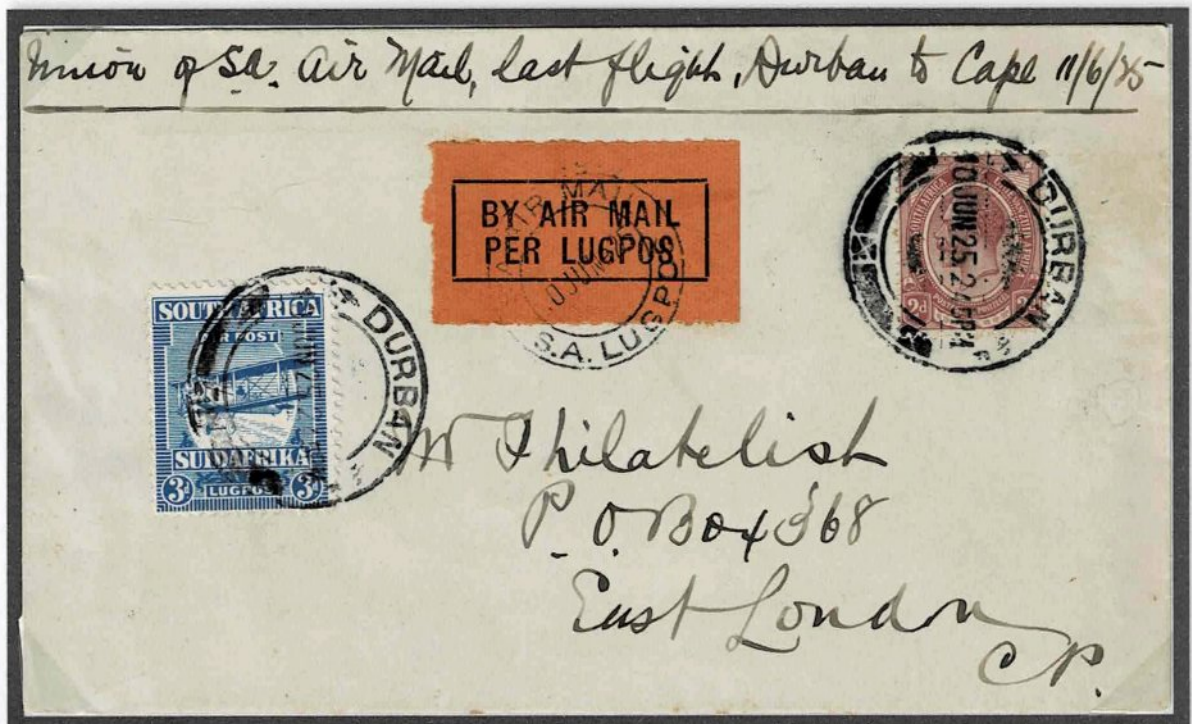 Union of S.A. Air Mail, last flight, Durban to Cape 11/6/25
BY AIR MAIL
PER LUGPOS
AIR MAIL
S.A. LUGPOS
DURBAN
10 JUN 25
SOUTH AFRICA
2d 2d
SOUTH AFRICA
AIR POST
SUIDAFRIKA
3d LUGPOS 3d
DURBAN
Mr Philatelist
P.O. Box 368
East London
C P.